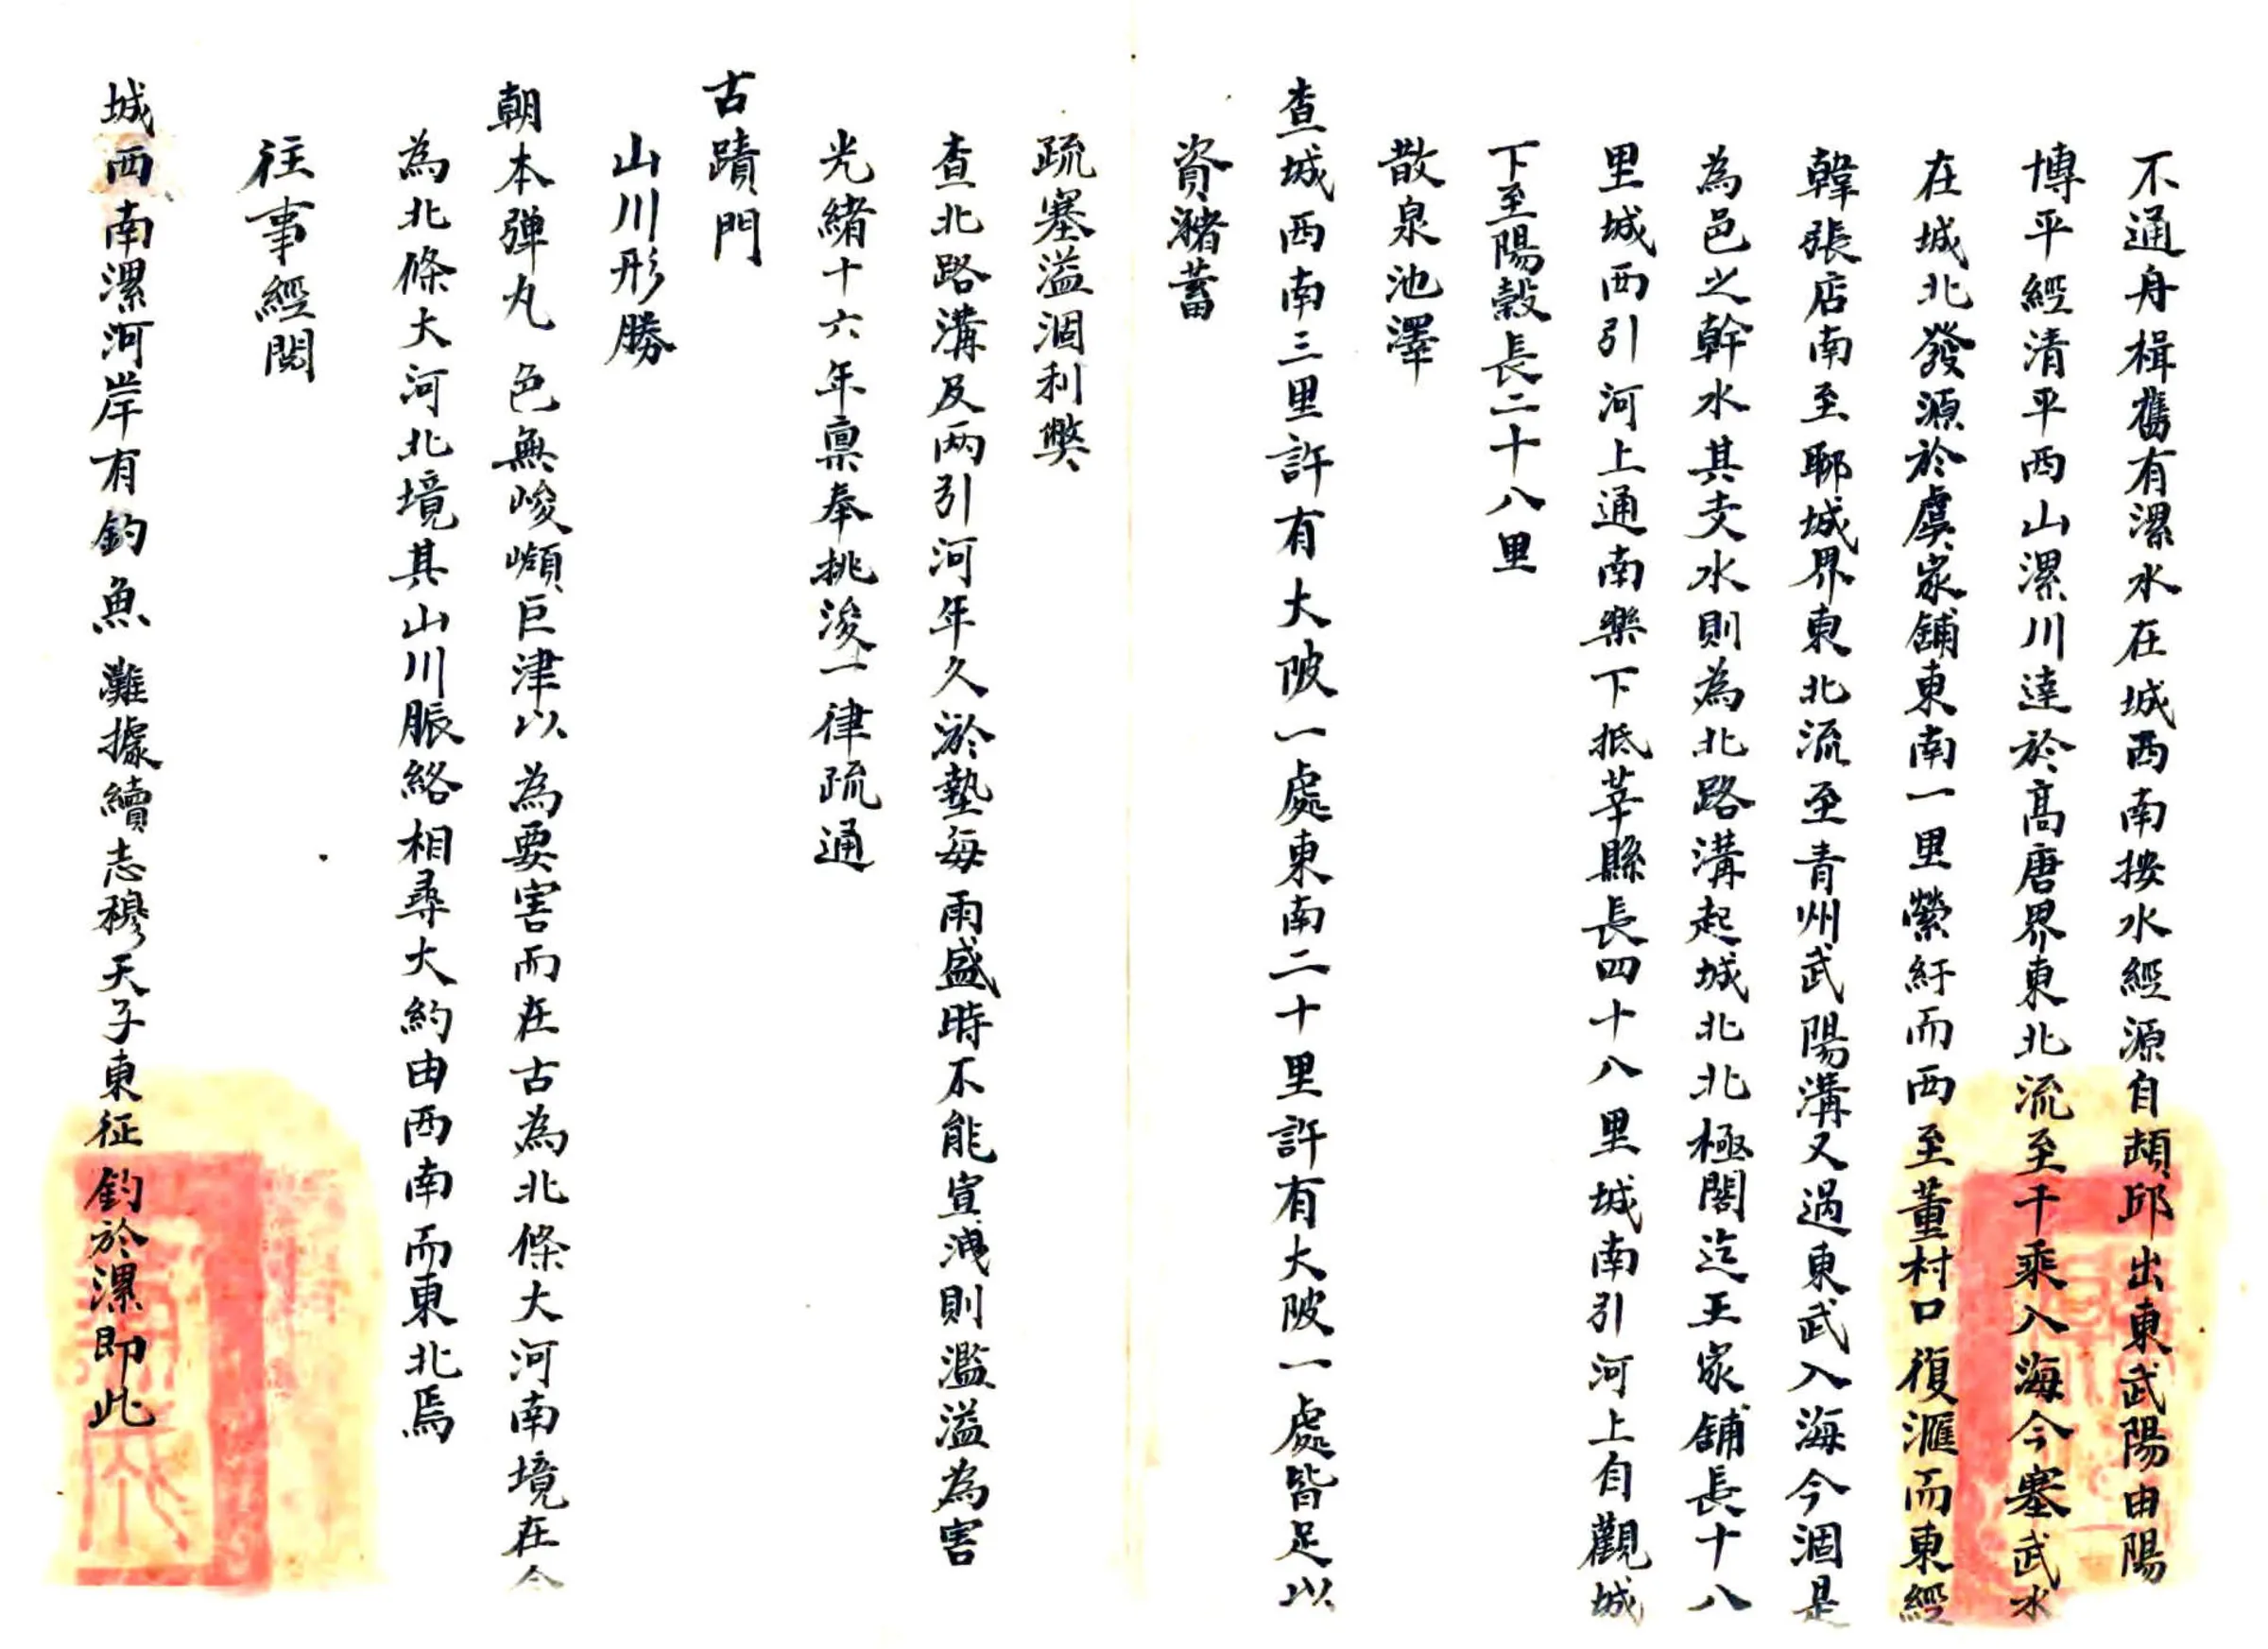 不通舟楫舊有漯水在城西南按水經源自頓邱出東武陽由陽
博平經清平西山漯川達於高唐界東北流至千乘入海今塞武水
在城北發源於虞家舖東南一里縈紆而西至董村口復滙而東經
韓張店南至聊城界東北流至青州武陽溝又過東武入海今涸是
為邑之幹水其支水則為北路溝起城北北極閣迄王家舖長十八
里城西引河上通南樂下抵莘縣長四十八里城南引河上自觀城
下至陽穀長二十八里
散泉池澤
查城西南三里許有大陂一處東南二十里許有大陂一處皆足以
資瀦蓄
疏塞溢涸利弊
查北路溝及兩引河年久淤墊每雨盛時不能宣洩則濫溢為害
光緒十六年稟奉挑浚一律疏通
古蹟門
山川形勝
朝本彈丸色無峻巔巨津以為要害而在古為北條大河南境在今
為北條大河北境其山川脈絡相尋大約由西南而東北焉
往事經閱
城西南漯河岸有釣魚灘據續志穆天子東征釣於漯即此